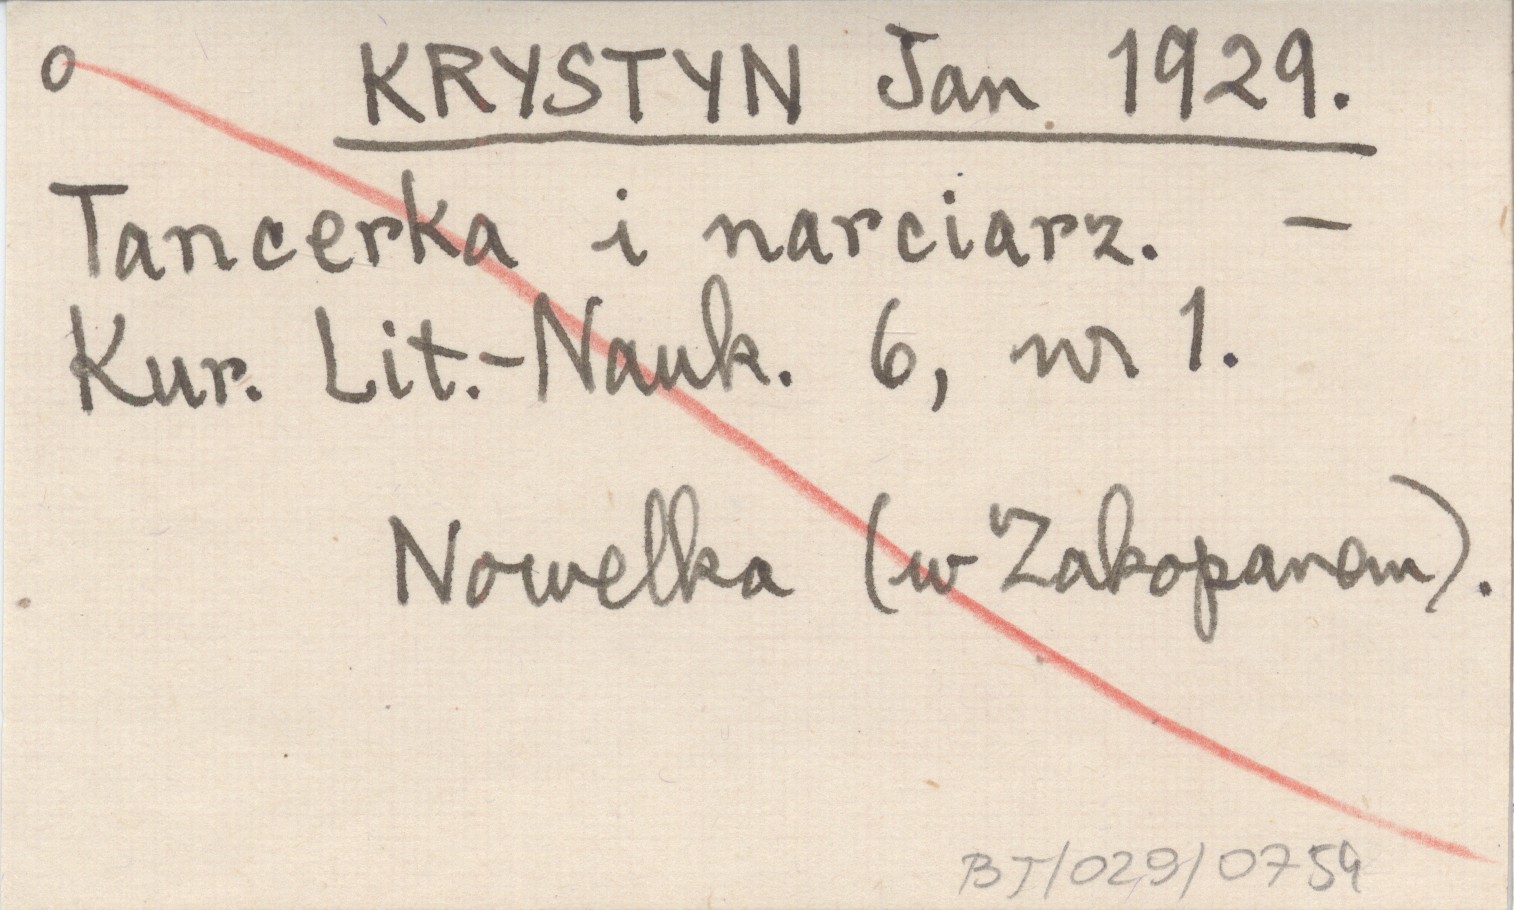 o KRYSTYN Jan 1929.
Tancerka i narciarz. –
Kur. Lit.-Nauk. 6, nr 1.
Nowelka (w Zakopanem).
BJ/029/0759